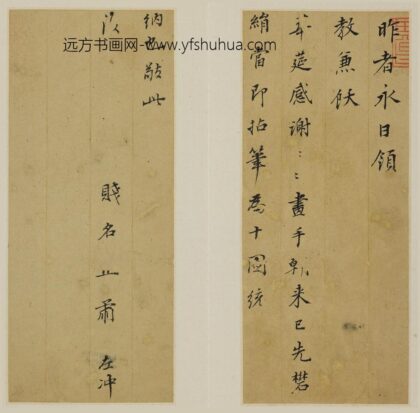 远方书画网-www.yfshuhua.com
昨者永日領
教兼飫
華莚感謝〻〻畫手軸来已先礬
絹當即拈筆為十圖統
納也敬此
賤名正肅 左冲